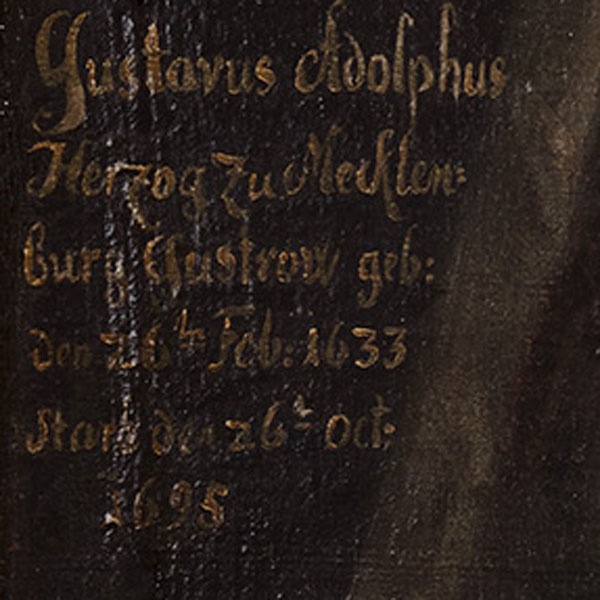 Gustavus Adolphus
Herzog zu Mecklen=
burg Gustrow geb:
den 26ten Feb: 1633
Starb den 26t Oct:
1695